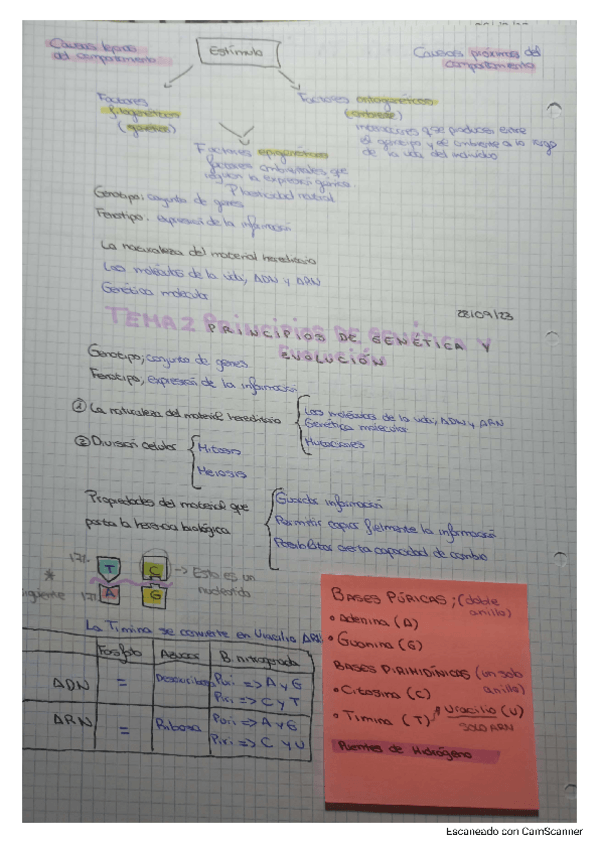 Causas lejanas
del comportamiento
Estímulo
Causas próximas del
comportamiento
Factores
filogenéticos
(genética)
Factores ontogenéticos
(ambiente)
interacciones que se producen entre
el genotipo y el ambiente a lo largo
de la vida del individuo
Factores epigenéticos
factores ambientales que
regulan la expresión génica.
Plasticidad neural
Genotipo; conjunto de genes
Fenotipo; expresión de la información
La naturaleza del material hereditario
Las moléculas de la vida; ADN y ARN
Genética molecular
28/09/23
TEMA 2 PRINCIPIOS DE GENÉTICA Y
EVOLUCIÓN
Genotipo; conjunto de genes
Fenotipo; expresión de la información
① La naturaleza del material hereditario
Las moléculas de la vida; ADN y ARN
Genética molecular
Mutaciones
② División celular
Mitosis
Meiosis
Propiedades del material que
porta la herencia biológica
Guardar información
Permitir copiar fielmente la información
Posibilitar cierta capacidad de cambio
17%
T
C
-> Esto es un
nucleótido
*
17%
A
G
La Timina se convierte en Uracilo ARN
Fosfato
Azúcar
B. nitrogenada
ADN
=
Desoxirribosa
Puri => A y G
Piri => C y T
ARN
=
Ribosa
Puri => A y G
Piri => C y U
BASES PÚRICAS; (doble
anillo)
• Adenina (A)
• Guanina (G)
BASES PIRIMIDÍNICAS (un solo
anillo)
• Citosina (C)
• Timina (T)
Uracilo (U)
SOLO ARN
Puentes de Hidrógeno
Escaneado con CamScanner